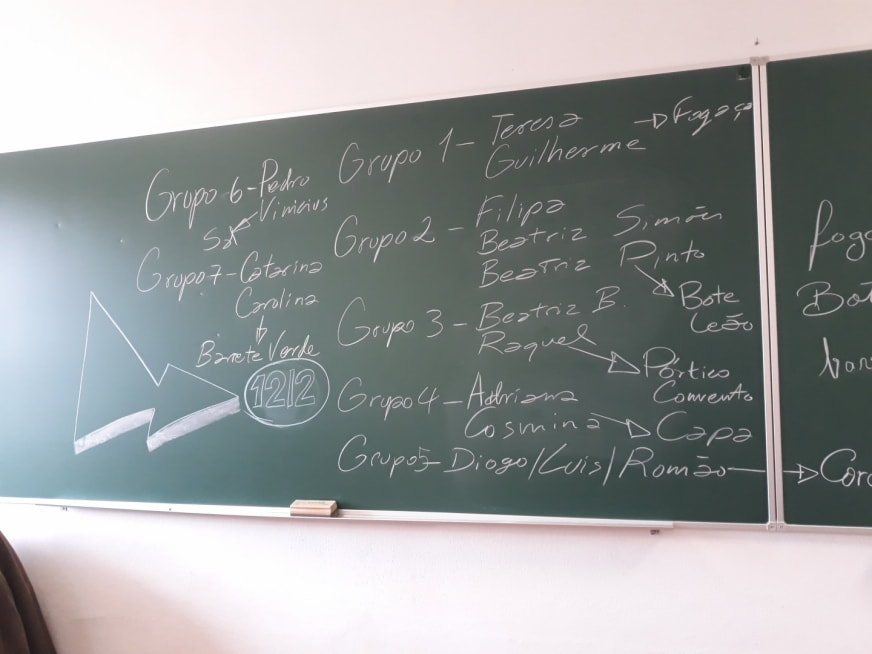 Grupo 6 - Pedro
Vinicius
Grupo 7 - Catarina
Carolina
Barrete Verde
1212
Grupo 1 - Teresa → Fogaça
Guilherme
Grupo 2 - Filipa
Beatriz Simões
Beatriz Pinto
Bote
Leão
Grupo 3 - Beatriz B.
Raquel → Pórtico
Convento
Grupo 4 - Adriana
Cosmina → Capa
Grupo 5 - Diogo/Luis/Romão →